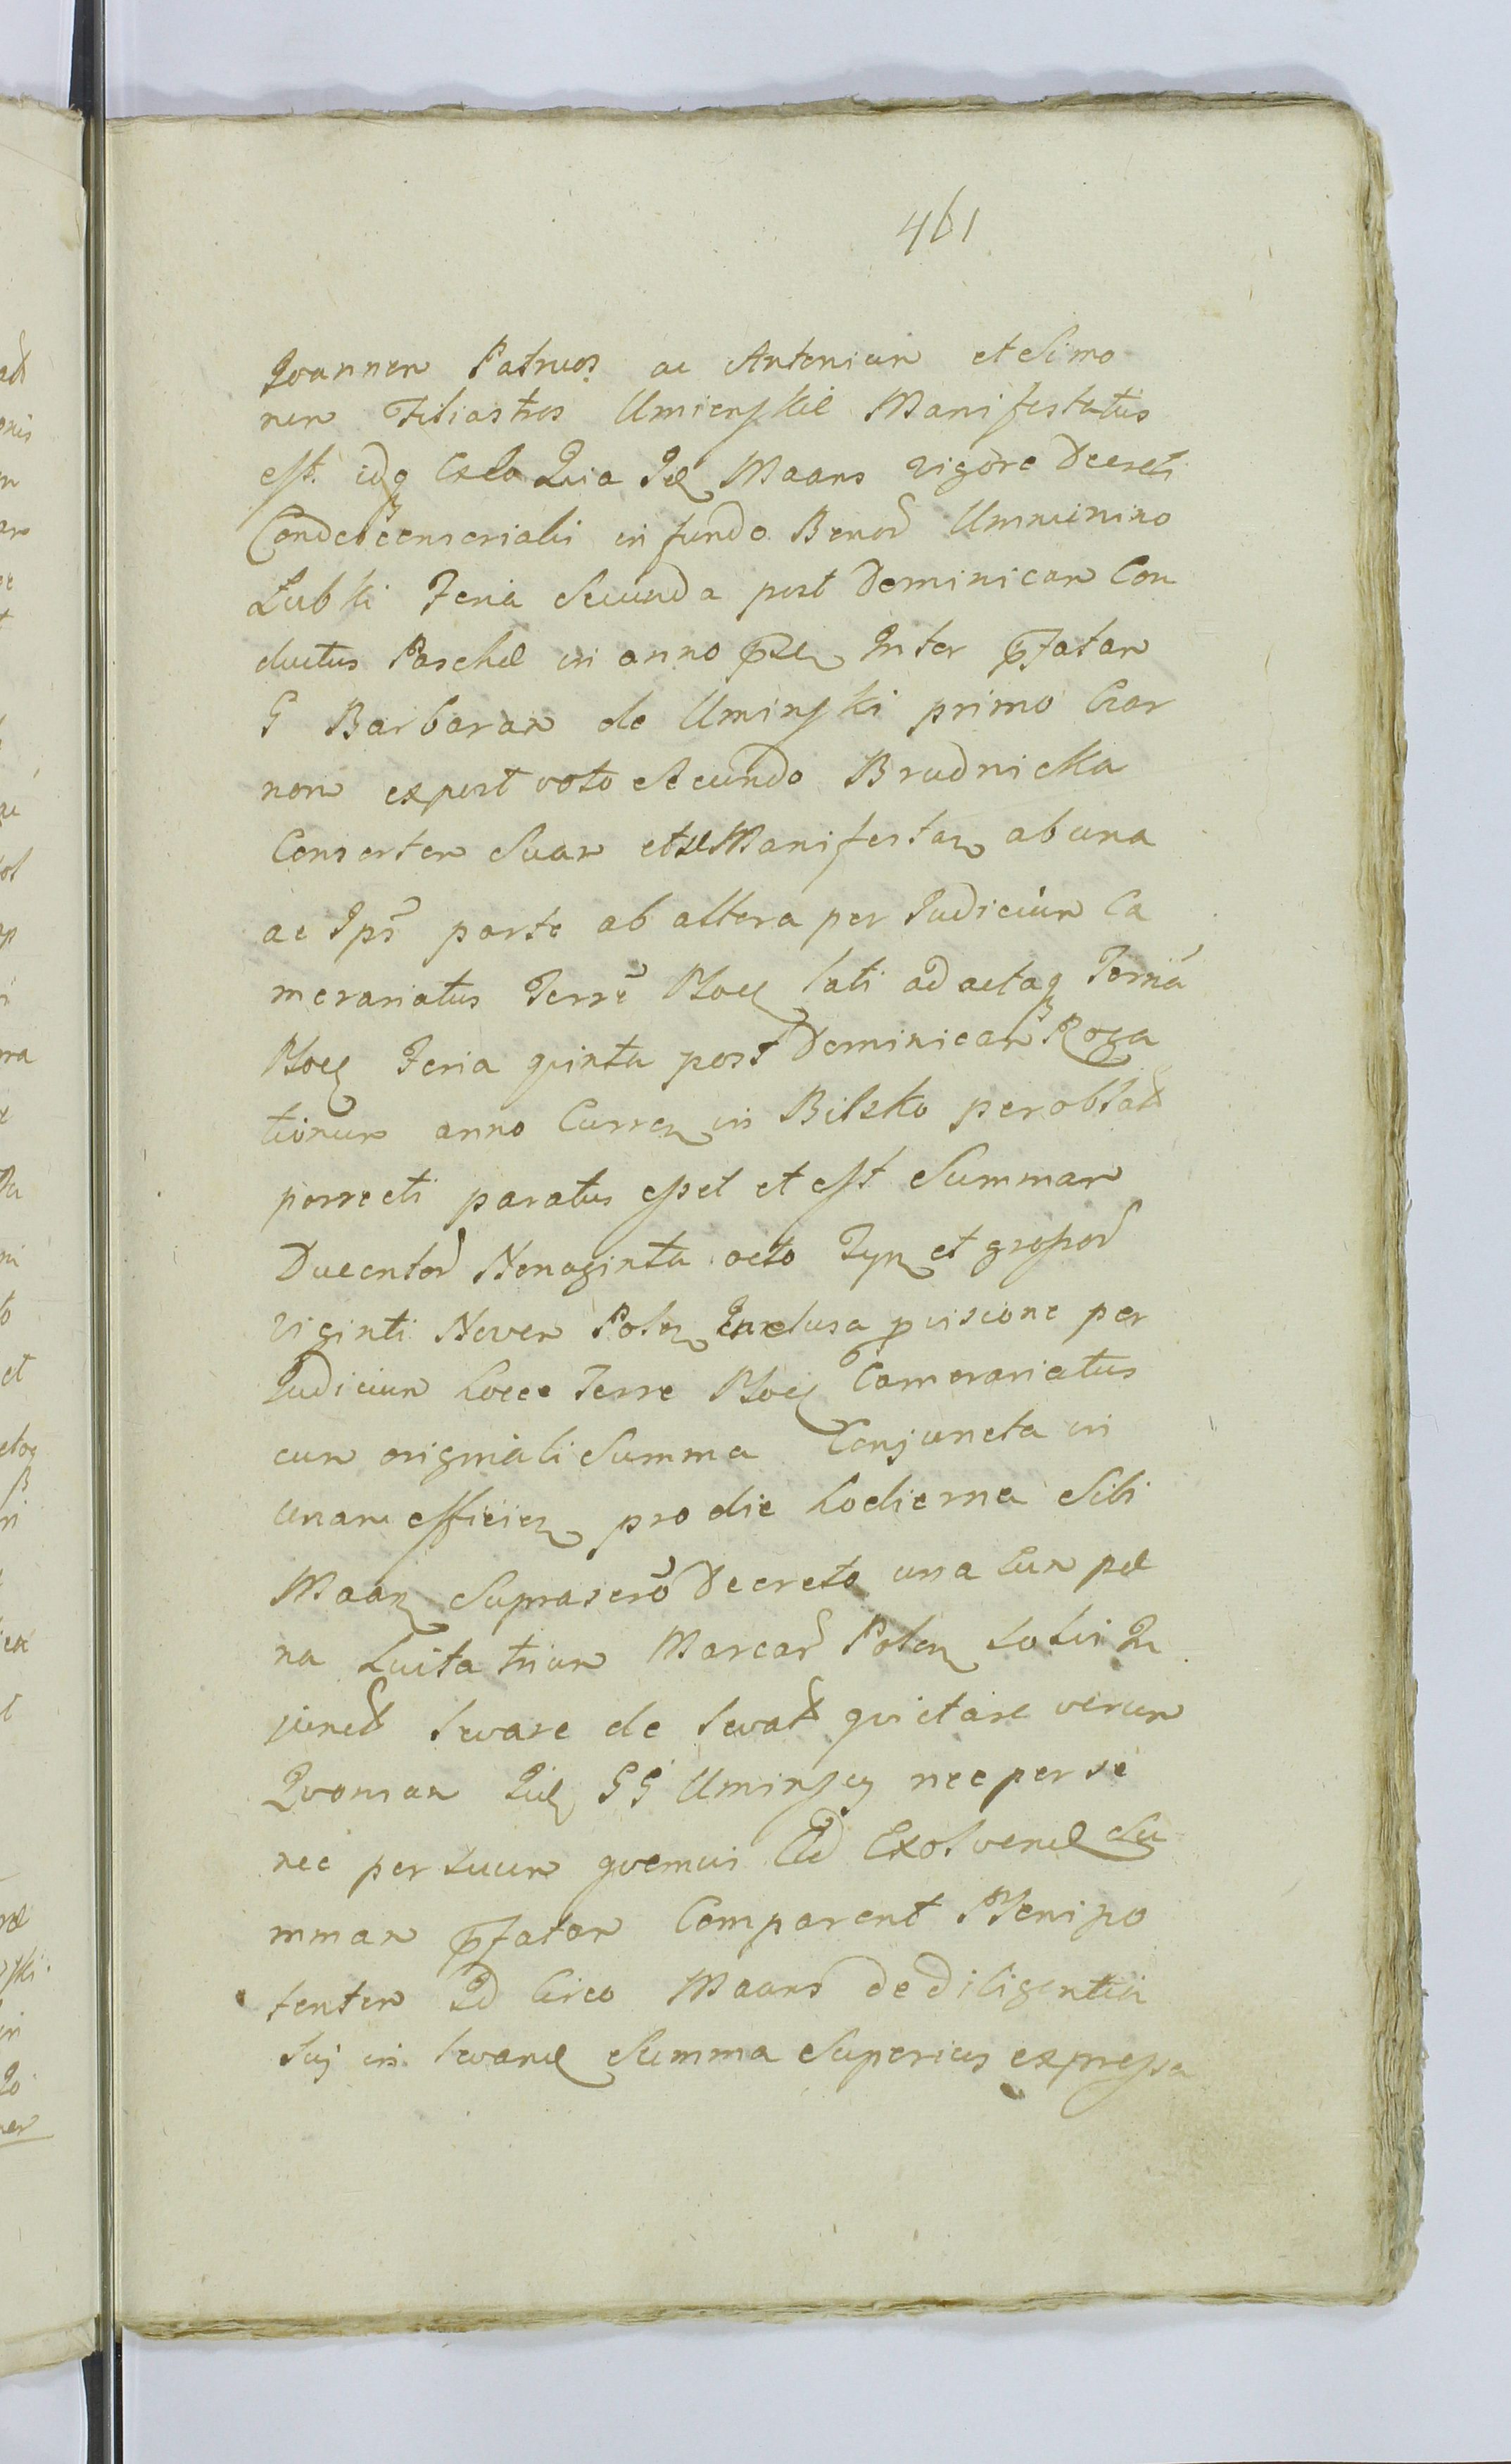 461
Joannem Patruos ac Antonium et Simo
nem Filiastros Umienskie Manifestatus
est. idq Exlo Quia Id Maans vigore Decreti
Condescensorialis in fundo Bonor Umnienino
Lubki Feria Secunda post Dominicam Con
ductus Paschae in anno pnti Inter pfatam
G Barbaram de Uminski primo Czar
nom expost voto Secundo Brudnicka
Consortem Suam et Manifestan ab una
ac Ips parte ab altera per Judicium Ca
merariatus Terre Ploc lati ad actaq Terria
Ploc Feria quinta post Dominicam Roga
tionum anno Curren in Bilsko per oblat
porrecti paratus esset et est Summam
Ducentor Nonaginta octo Tyn et grossor
viginti Novem Polon Inclusa pvisione per
Judicium hocce Terre Ploc Camerariatus
cum originali Summa Conjuncta in
unam efficien pro die hodierna Sibi
Maan Suprascro Decreto una Cum poe
na Luita trium Marcar Polon Solvi In
junct levare de levat quietare verum
Quoniam Iid GG Uminscy nec per se
nec per suum quemvis Ad Exolvend Su
mmam pfatam Comparent Plenipo
tentem Id Circo Maans de Diligentia
Sui in levand Summa Superius expressa